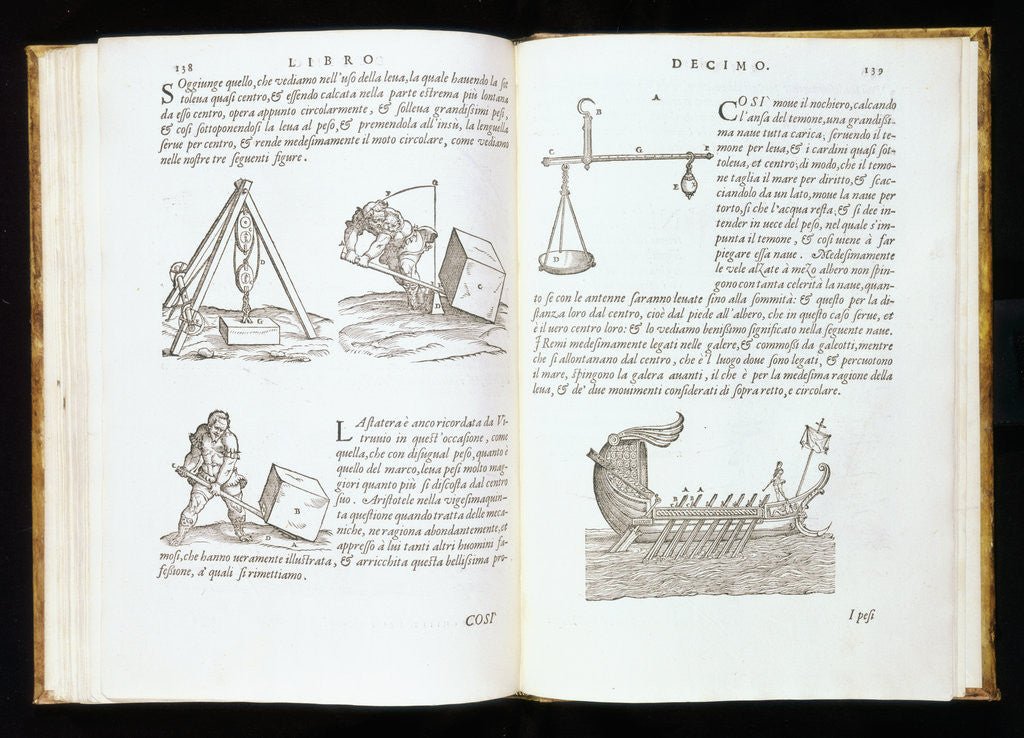 138
LIBRO
SOggiunge quello, che vediamo nell'uso della leua, la quale hauendo la sot
toleua quasi centro, & essendo calcata nella parte estrema più lontana
da esso centro, opera appunto circolarmente, & solleua grandissimi pesi,
& cosi sottoponendosi la leua al peso, & premendola all'insù, la lenguella
serue per centro, & rende medesimamente il moto circolare, come vediamo
nelle nostre tre seguenti figure.
F
G
D
G
D
C
LA statera è anco ricordata da Vi-
truuio in quest'occasione, come
quella, che con disugual peso, quanto è
quello del marco, leua pesi molto mag-
giori quanto più si discosta dal centro
suo. Aristotele nella vigesimaquin-
ta questione quando tratta delle meca-
niche, ne ragiona abondantemente, et
appresso à lui tanti altri huomini fa-
mosi, che hanno veramente illustrata, & arricchita questa bellissima pro-
fessione, a' quali si rimettiamo.
B
D
COSI'
DECIMO.
139
A
B
C
G
F
E
D
COSI' moue il nochiero, calcando
l'ansa del temone, una grandissi-
ma naue tutta carica; seruendo il te-
mone per leua, & i cardini quasi sot-
toleua, et centro; di modo, che il temo-
ne taglia il mare per diritto, & scac-
ciandolo da un lato, moue la naue per
torto, si che l'acqua resta, & si dee in-
tender in uece del peso, nel quale s'im-
punta il temone, & cosi uiene à far
piegare essa naue. Medesimamente
le vele alzate à mezo albero non spin-
gono con tanta celerità la naue, quan-
to se con le antenne saranno leuate sino alla sommità: & questo per la di-
stanza loro dal centro, cioè dal piede all'albero, che in questo caso serue, et
è il uero centro loro: & lo vediamo benissimo significato nella seguente naue.
I Remi medesimamente legati nelle galere, & commossi da galeotti, mentre
che si allontanano dal centro, che è'l luogo doue sono legati, & percuotono
il mare, spingono la galera auanti, il che è per la medesima ragione della
leua, & de' due mouimenti considerati di sopra retto, e circolare.
A A
I pesi